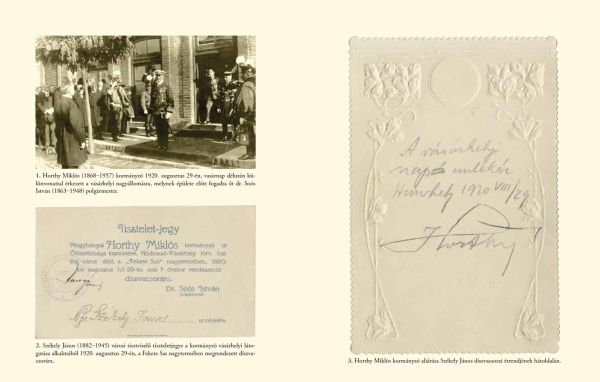 1. Horthy Miklós (1868–1957) kormányzó 1920. augusztus 29-én, vasárnap délután kü-
lönvonattal érkezett a vásárhelyi nagyállomásra, melynek épülete előtt fogadta őt dr. Soós
István (1863–1948) polgármester.
Tisztelet-jegy
Nagybányai Horthy Miklós kormányzó úr
Őfőméltósága tiszteletére, Hódmező-Vásárhely törv. hat.
jog. város által, a „Fekete Sas" nagytermében, 1920.
évi augusztus hó 29-én este 7 órakor rendezendő
díszvacsoráro.
Dr. Soós István
polgármester.
Ngs Székely János úr részére.
2. Székely János (1882–1945) városi tisztviselő tiszteletjegye a kormányzó vásárhelyi láto-
gatása alkalmából 1920. augusztus 29-én, a Fekete Sas nagytermében megrendezett díszva-
csorán.
A vásárhelyi
napok emlékére
Hmvhely 1920 VIII/29
Horthy
3. Horthy Miklós kormányzó aláírása Székely János díszvacsorai étrendjének hátoldalán.